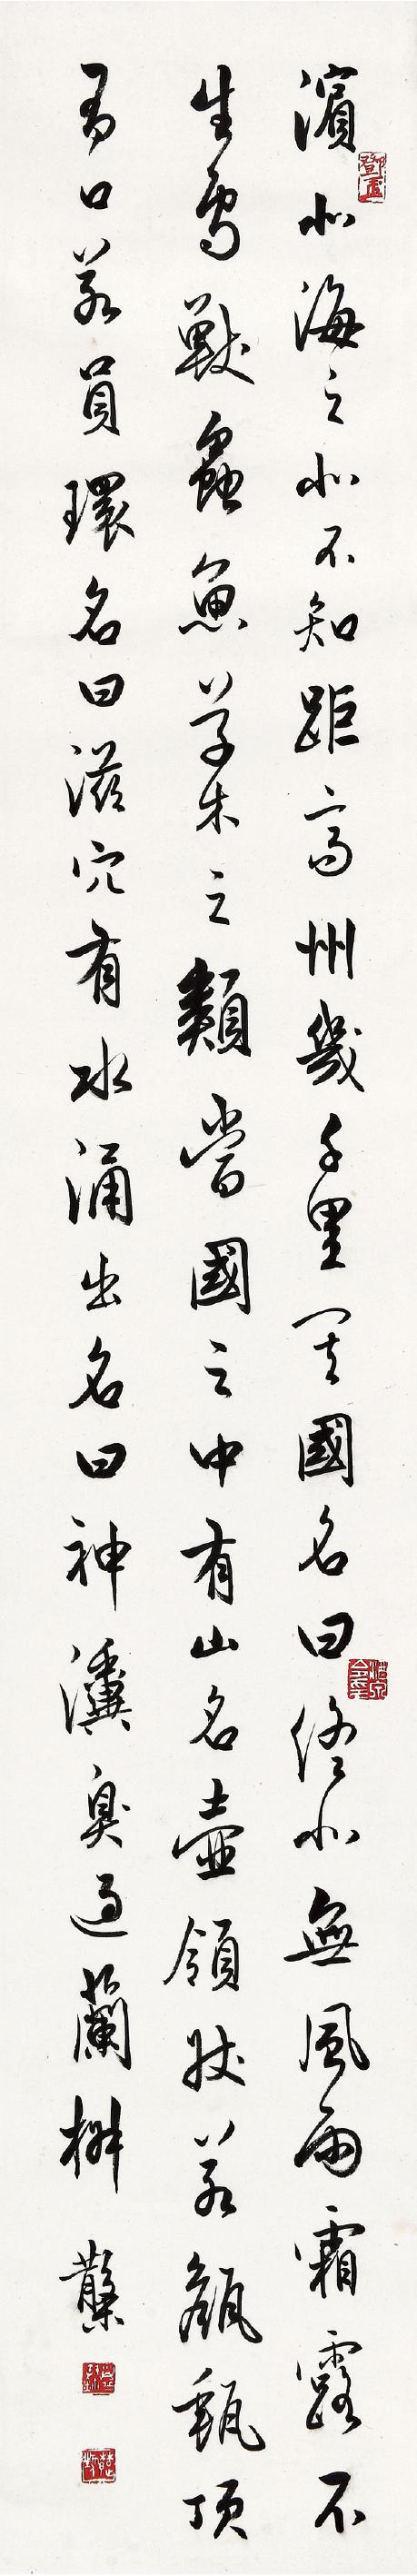 濱北海之北不知距齊州幾千里其國名曰終北無風雨霜露不
生鳥獸蟲魚草木之類當國之中有山名壺領狀若甔甀頂
有口若員環名曰滋穴有水涌出名曰神瀵臭過蘭椒